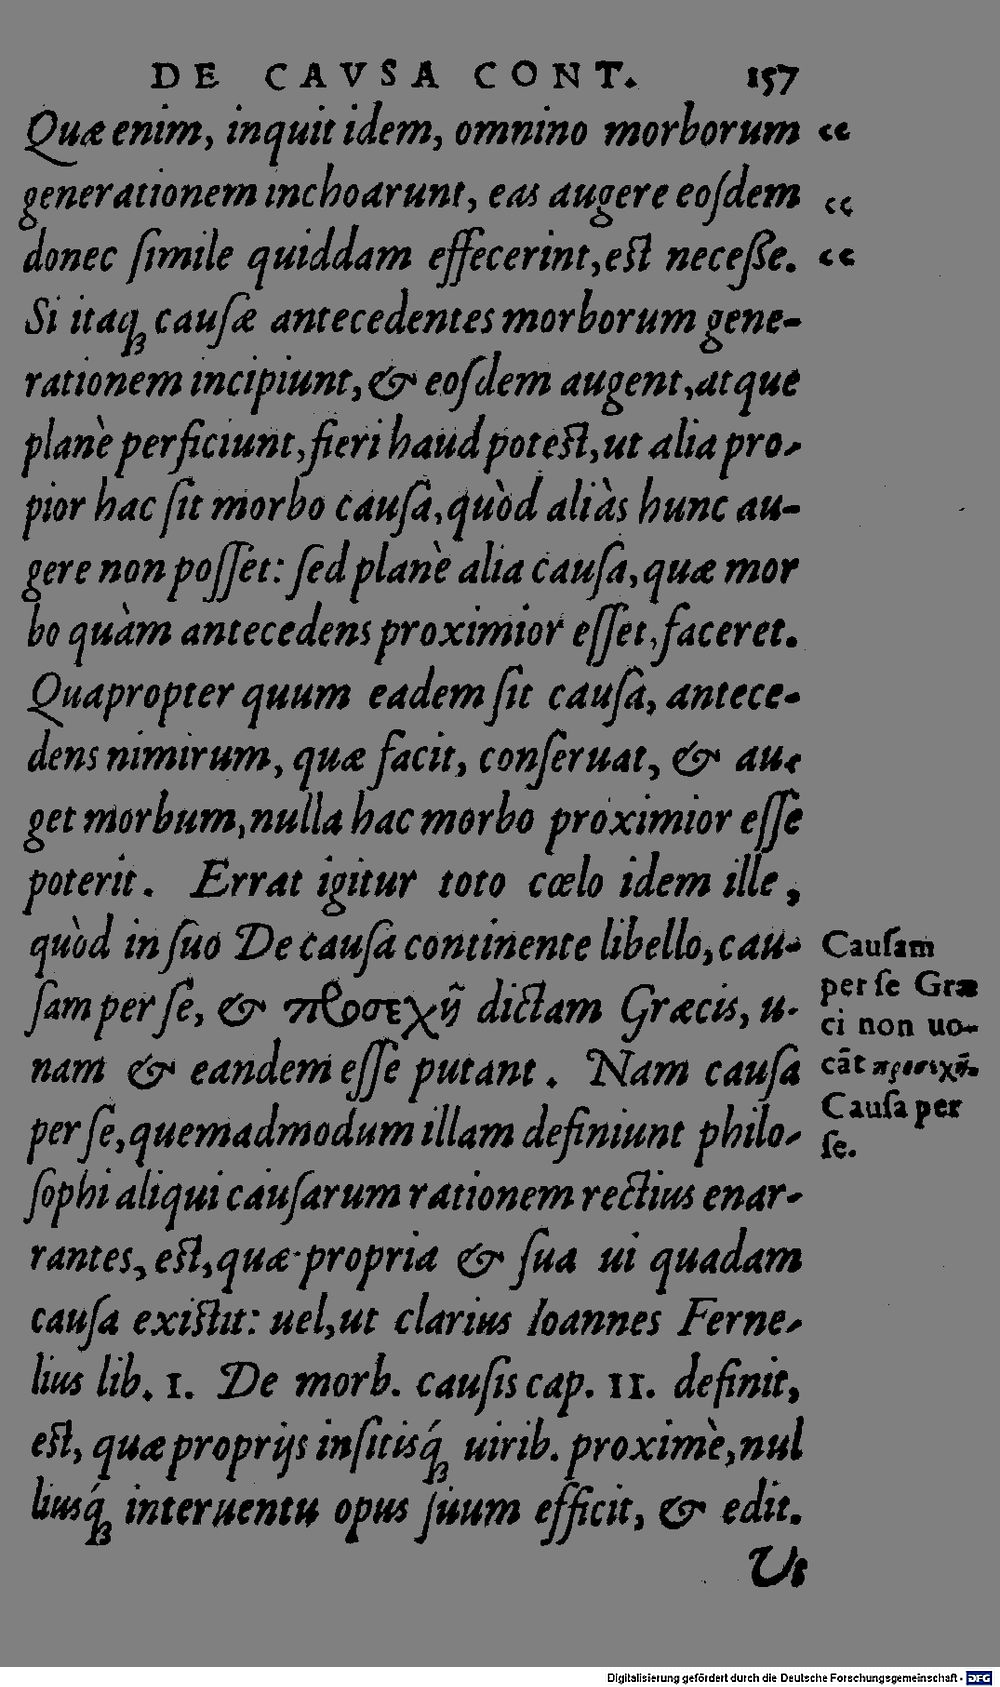 DE CAVSA CONT. 157
Quæ enim, inquit idem, omnino morborum “
generationem inchoarunt, eas augere eoſdem “
donec ſimile quiddam effecerint, eſt neceſſe. “
Si itaqꝫ cauſæ antecedentes morborum gene-
rationem incipiunt, & eoſdem augent, atque
planè perficiunt, fieri haud poteſt, ut alia pro-
pior hac ſit morbo cauſa, quòd aliàs hunc au-
gere non poſſet: ſed planè alia cauſa, quæ mor
bo quàm antecedens proximior eſſet, faceret.
Quapropter quum eadem ſit cauſa, antece-
dens nimirum, quæ facit, conſeruat, & au-
get morbum, nulla hac morbo proximior eſſe
poterit. Errat igitur toto cœlo idem ille,
quòd in ſuo De cauſa continente libello, cau-
ſam per ſe, & προσεχῆ dictam Græcis, u-
nam & eandem eſſe putant. Nam cauſa
per ſe, quemadmodum illam definiunt philo-
ſophi aliqui cauſarum rationem rectius enar-
rantes, eſt, quæ propria & ſua ui quadam
cauſa exiſtit: uel, ut clarius Ioannes Ferne-
lius lib. 1. De morb. cauſis cap. 11. definit,
eſt, quæ proprijs inſitisq́ꝫ uirib. proximè, nul
liusq́ꝫ interuentu opus ſuum efficit, & edit.
Ut
Cauſam
per ſe Græ
ci non uo-
cãt προσεχῆ.
Cauſa per
ſe.
Digitalisierung gefördert durch die Deutsche Forschungsgemeinschaft - DFG